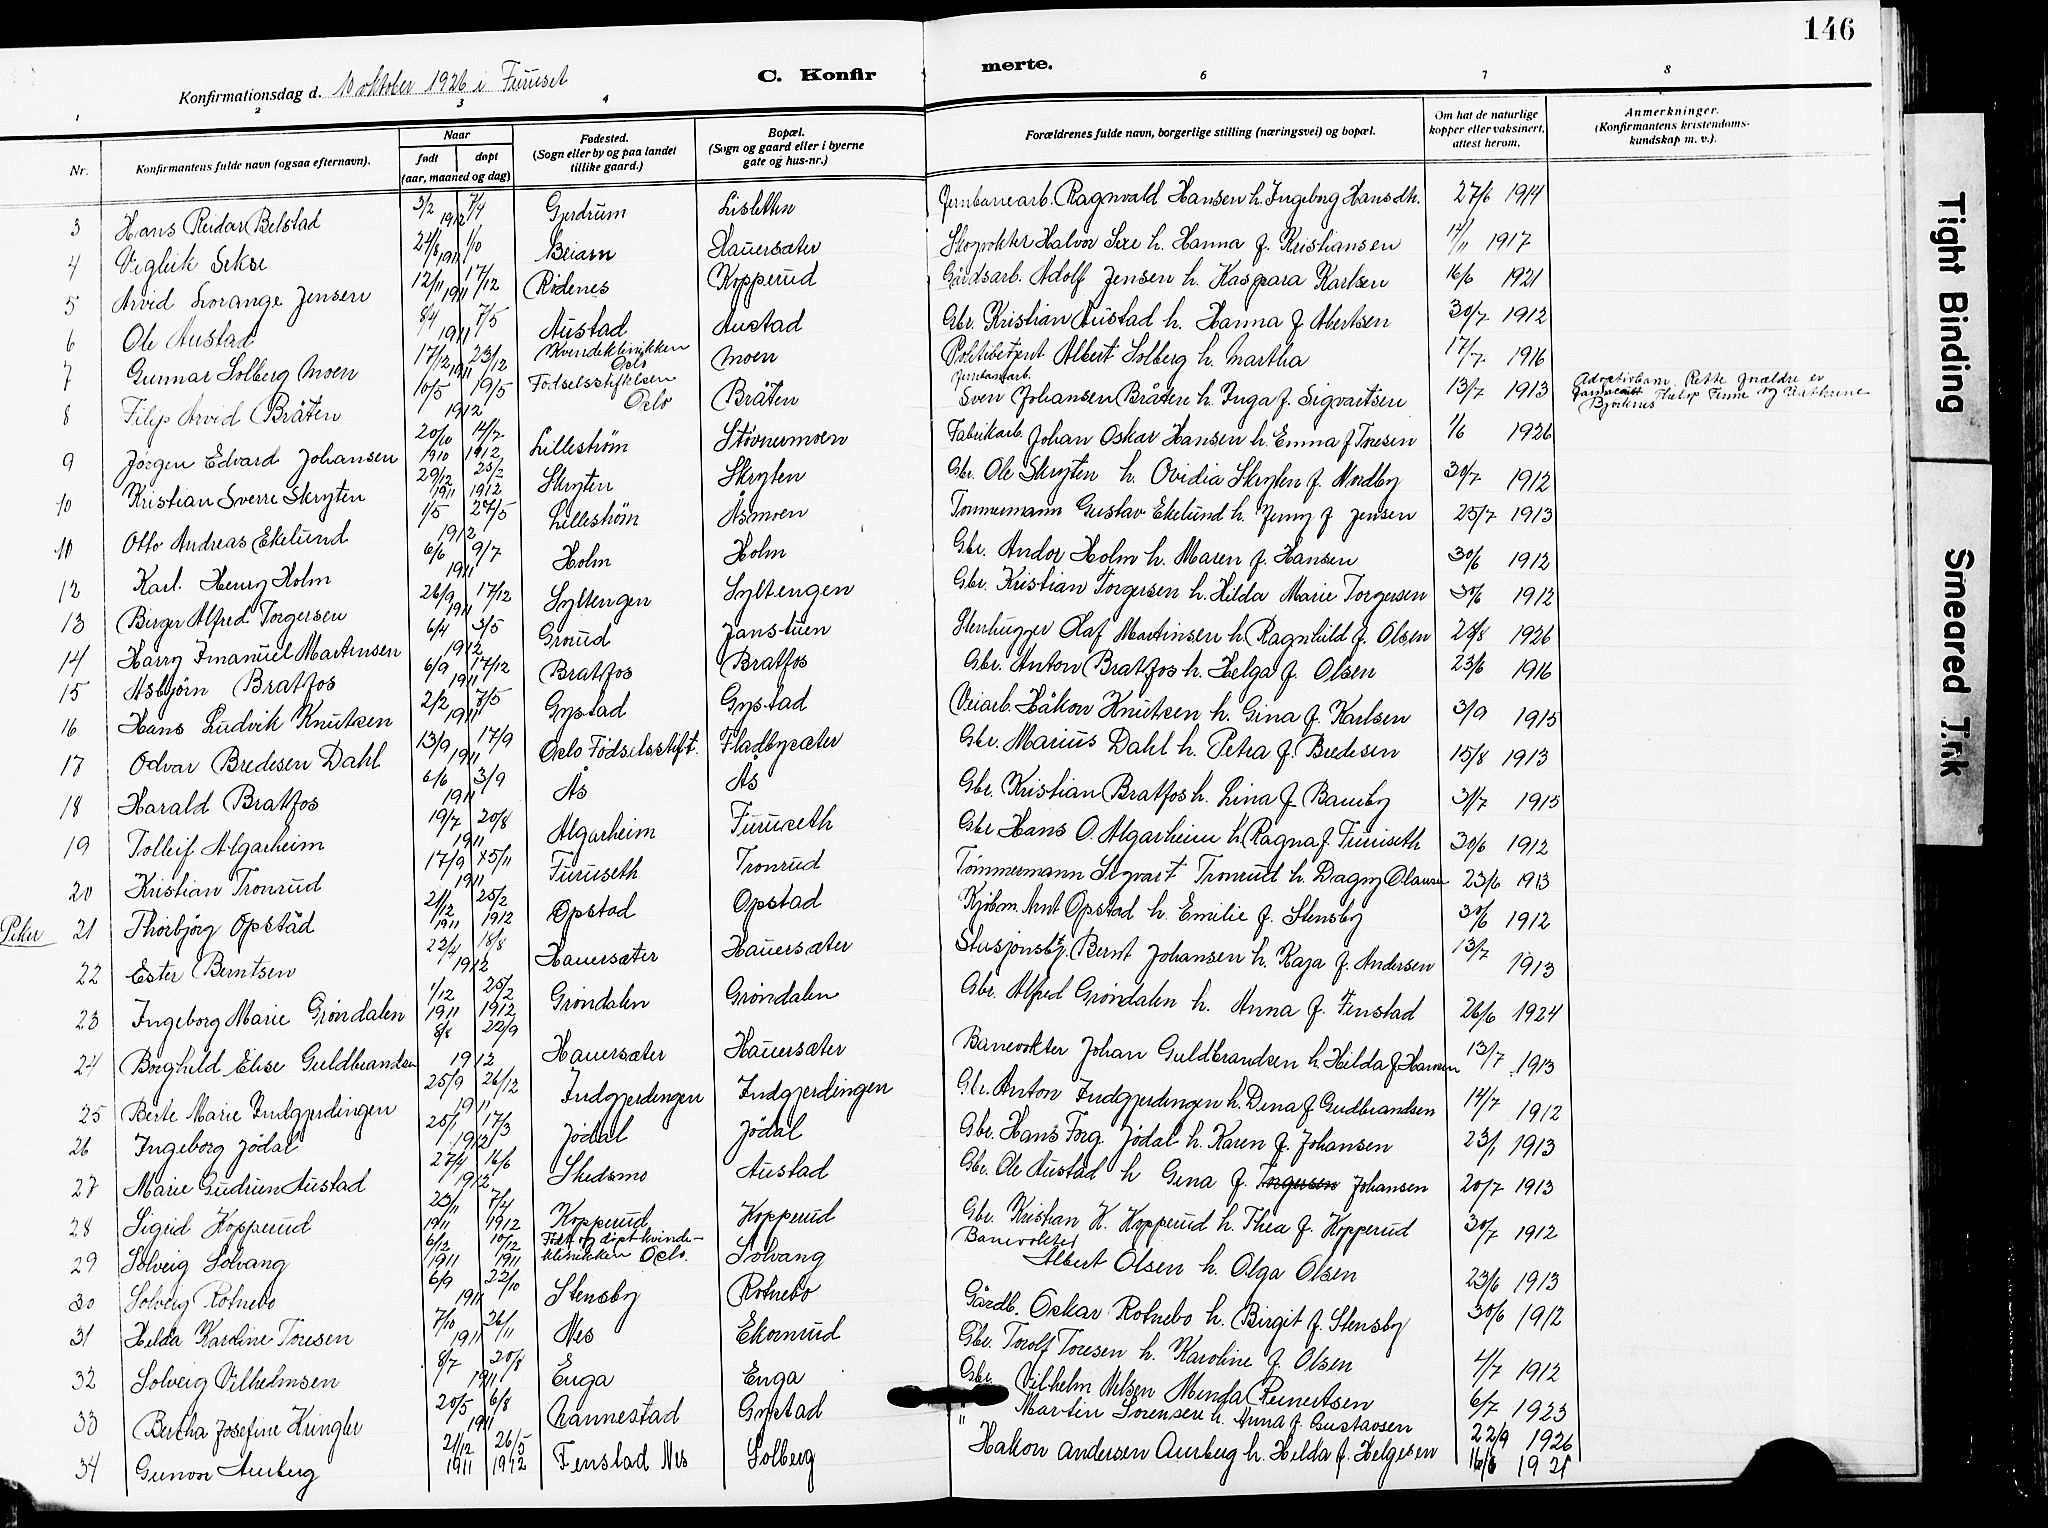 146
C. Konfirmerte.
Konfirmationsdag d. 10 oktober 1926 i Furuset
1 2 3 4 6 7 8
Nr. Konfirmantens fulde navn (ogsaa efternavn). Naar født døpt (aar, maaned og dag) Fødested. (Sogn eller by og paa landet tillike gaard.) Bopæl. (Sogn og gaard eller i byerne gate og hus-nr.) Forældrenes fulde navn, borgerlige stilling (næringsvei) og bopæl. Om hat de naturlige kopper eller vaksinert, attest herom. Anmerkninger. (Konfirmantens kristendomskundskap m. v.).
3 Hans Reidar Belstad 3/2 7/4 1912 Gjerdrum Lisletten Jernbanearb. Ragnvald Hansen h. Ingeborg Hansdtr. 27/6 1914
4 Vegleik Sekse 24/8 1/10 1911 Beiarn Hauersæter Skogvokter Halvor Sexe h. Hanna f. Kristiansen 14/11 1917
5 Arvid Lorange Jensen 12/11 17/12 1911 Rødenes Kopperud Gårdsarb. Adolf Jensen h. Kaspara Karlsen 16/6 1921
6 Ole Austad 8/4 7/5 1911 Austad Austad Gbr. Kristian Austad h. Hanna f. Abertsen 30/7 1912
7 Gunnar Solberg Moen 17/2 23/12 1911 Kvindeklinikken Oslo Moen Politibetjent Albert Solberg h. Martha 17/7 1916
8 Filip Arvid Bråten 10/5 19/5 1912 Fødselsstiftelsen Oslo Bråten Jernbanearb. Sven Johansen Bråten h. Inga f. Sigvartsen 13/7 1913 Adoptivbarn. Rette forældre er Filip Finne og Kathrine Bjørknes
9 Jørgen Edvard Johansen 20/10 1910 14/7 1912 Lillestrøm Støvnermoen Fabrikarb. Johan Oskar Hansen h. Emma f. Toresen 1/6 1926
10 Kristian Sverre Skryten 29/12 1911 25/2 1912 Skryten Skryten Gbr. Ole Skryten h. Ovidia Skryten f. Nordby 30/7 1912
10 Otto Andreas Ekelund 1/5 27/5 1912 Lillestrøm Åsmoen Tømmermann Gustav Ekelund h. Jenny f. Jensen 25/7 1913
12 Karl Henry Holm 6/6 9/7 1911 Holm Holm Gbr. Andor Holm h. Maren f. Hansen 30/6 1912
13 Birger Alfred Torgersen 26/9 17/12 1911 Syltengen Syltengen Gbr. Kristian Torgersen h. Hilda Marie Torgersen 30/6 1912
14 Harry Imanuel Martinsen 6/4 3/5 1912 Grorud Janstuen Stenhugger Olaf Martinsen h. Ragnhild f. Olsen 28/8 1926
15 Asbjørn Bratfos 6/9 17/12 1911 Bratfos Bratfos Gbr. Anton Bratfos h. Helga f. Olsen 23/6 1916
16 Hans Ludvik Knutsen 2/2 7/5 1911 Gystad Gystad Veiarb. Håkon Knutsen h. Gina f. Karlsen 3/9 1915
17 Odvar Bredesen Dahl 13/9 17/9 1911 Oslo Fødselsstift. Fladbysæter Gbr. Marius Dahl h. Petra f. Bredesen 15/8 1913
18 Harald Bratfos 6/6 3/9 1911 Ås Ås Gbr. Kristian Bratfos h. Lina f. Bamby 31/7 1915
19 Tolleif Algarheim 19/7 20/8 1911 Algarheim Furuseth Gbr Hans O. Algarheim h. Ragna f. Furuseth 30/6 1912
20 Kristian Tronrud 17/9 5/11 1911 Furuseth Tronrud Tømmermann Sigvart Tronrud h. Dagny Olausen 23/6 1913
Piker 21 Thorbjørg Opstad 21/12 1911 25/2 1912 Opstad Opstad Kjøbm. Arnt Opstad h. Emilie f. Stensby 30/6 1912
22 Ester Berntsen 22/4 18/8 1912 Hauersæter Hauersæter Stasjonsbtj. Bernt Johansen h. Kaja f. Andersen 13/7 1913
23 Ingeborg Marie Grøndalen 1/12 1911 25/2 1912 Grøndalen Grøndalen Gbr. Alfred Grøndalen h. Anna f. Finstad 26/6 1924
24 Borghild Elise Guldbrandsen 8/8 22/9 1912 Hauersæter Hauersæter Banevokter Johan Guldbrandsen h. Hilda f. Hansen 13/7 1913
25 Berte Marie Indgjerdingen 25/9 26/12 1911 Indgjerdingen Indgjerdingen Gbr. Anton Indgjerdingen h. Dina f. Gudbrandsen 14/7 1912
26 Ingeborg Jødal 25/1 17/3 1912 Jødal Jødal Gbr. Hans Torg. Jødal h. Karen f. Johansen 23/1 1913
27 Marie Gudrun Austad 27/4 16/6 1912 Skedsmo Austad Gbr. Ole Austad h Gina f. Torgersen Johansen 20/7 1913
28 Sigrid Kopperud 23/11 1911 7/4 1912 Kopperud Kopperud Gbr. Kristian K. Kopperud h. Thea f. Kopperud 30/7 1912
29 Solveig Solvang 6/12 1911 10/12 1911 Født og døpt kvindeklinikken Oslo. Solvang Banevokter Albert Olsen h. Olga Olsen 23/6 1913
30 Solveig Rotnebo 6/9 22/10 1911 Stensby Rotnebo Gårdb. Oskar Rotnebo h. Birgit f. Stensby 30/6 1912
31 Hilda Karoline Toresen 7/10 26/11 1911 Nes Ekornrud Gbr. Torolf Toresen h. Karoline f. Olsen 4/7 1912
32 Solveig Vilhelmsen 8/7 20/8 1911 Enga Enga Gbr. Vilhelm Nilsen Menda Reinertsen 6/7 1923
33 Bertha Josefine Kringler 20/5 6/8 1911 Nannestad Gystad " Martin Sørensen h. Anna f. Gustavsen 22/9 1926
34 Gunvor Aurberg 21/12 1911 26/5 1912 Fenstad Nes Solberg Hakon Andersen Aurberg h. Hilda f. Helgesen 16/6 1921
Tight Binding
Smeared Ink